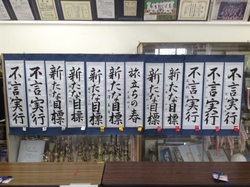 不言実行
不言実行
不言実行
新たな目標
新たな目標
旅立ちの春
新たな目標
新たな目標
新たな目標
不言実行
不言実行